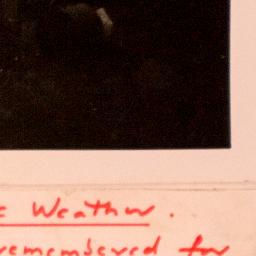 Weather.
remembered for